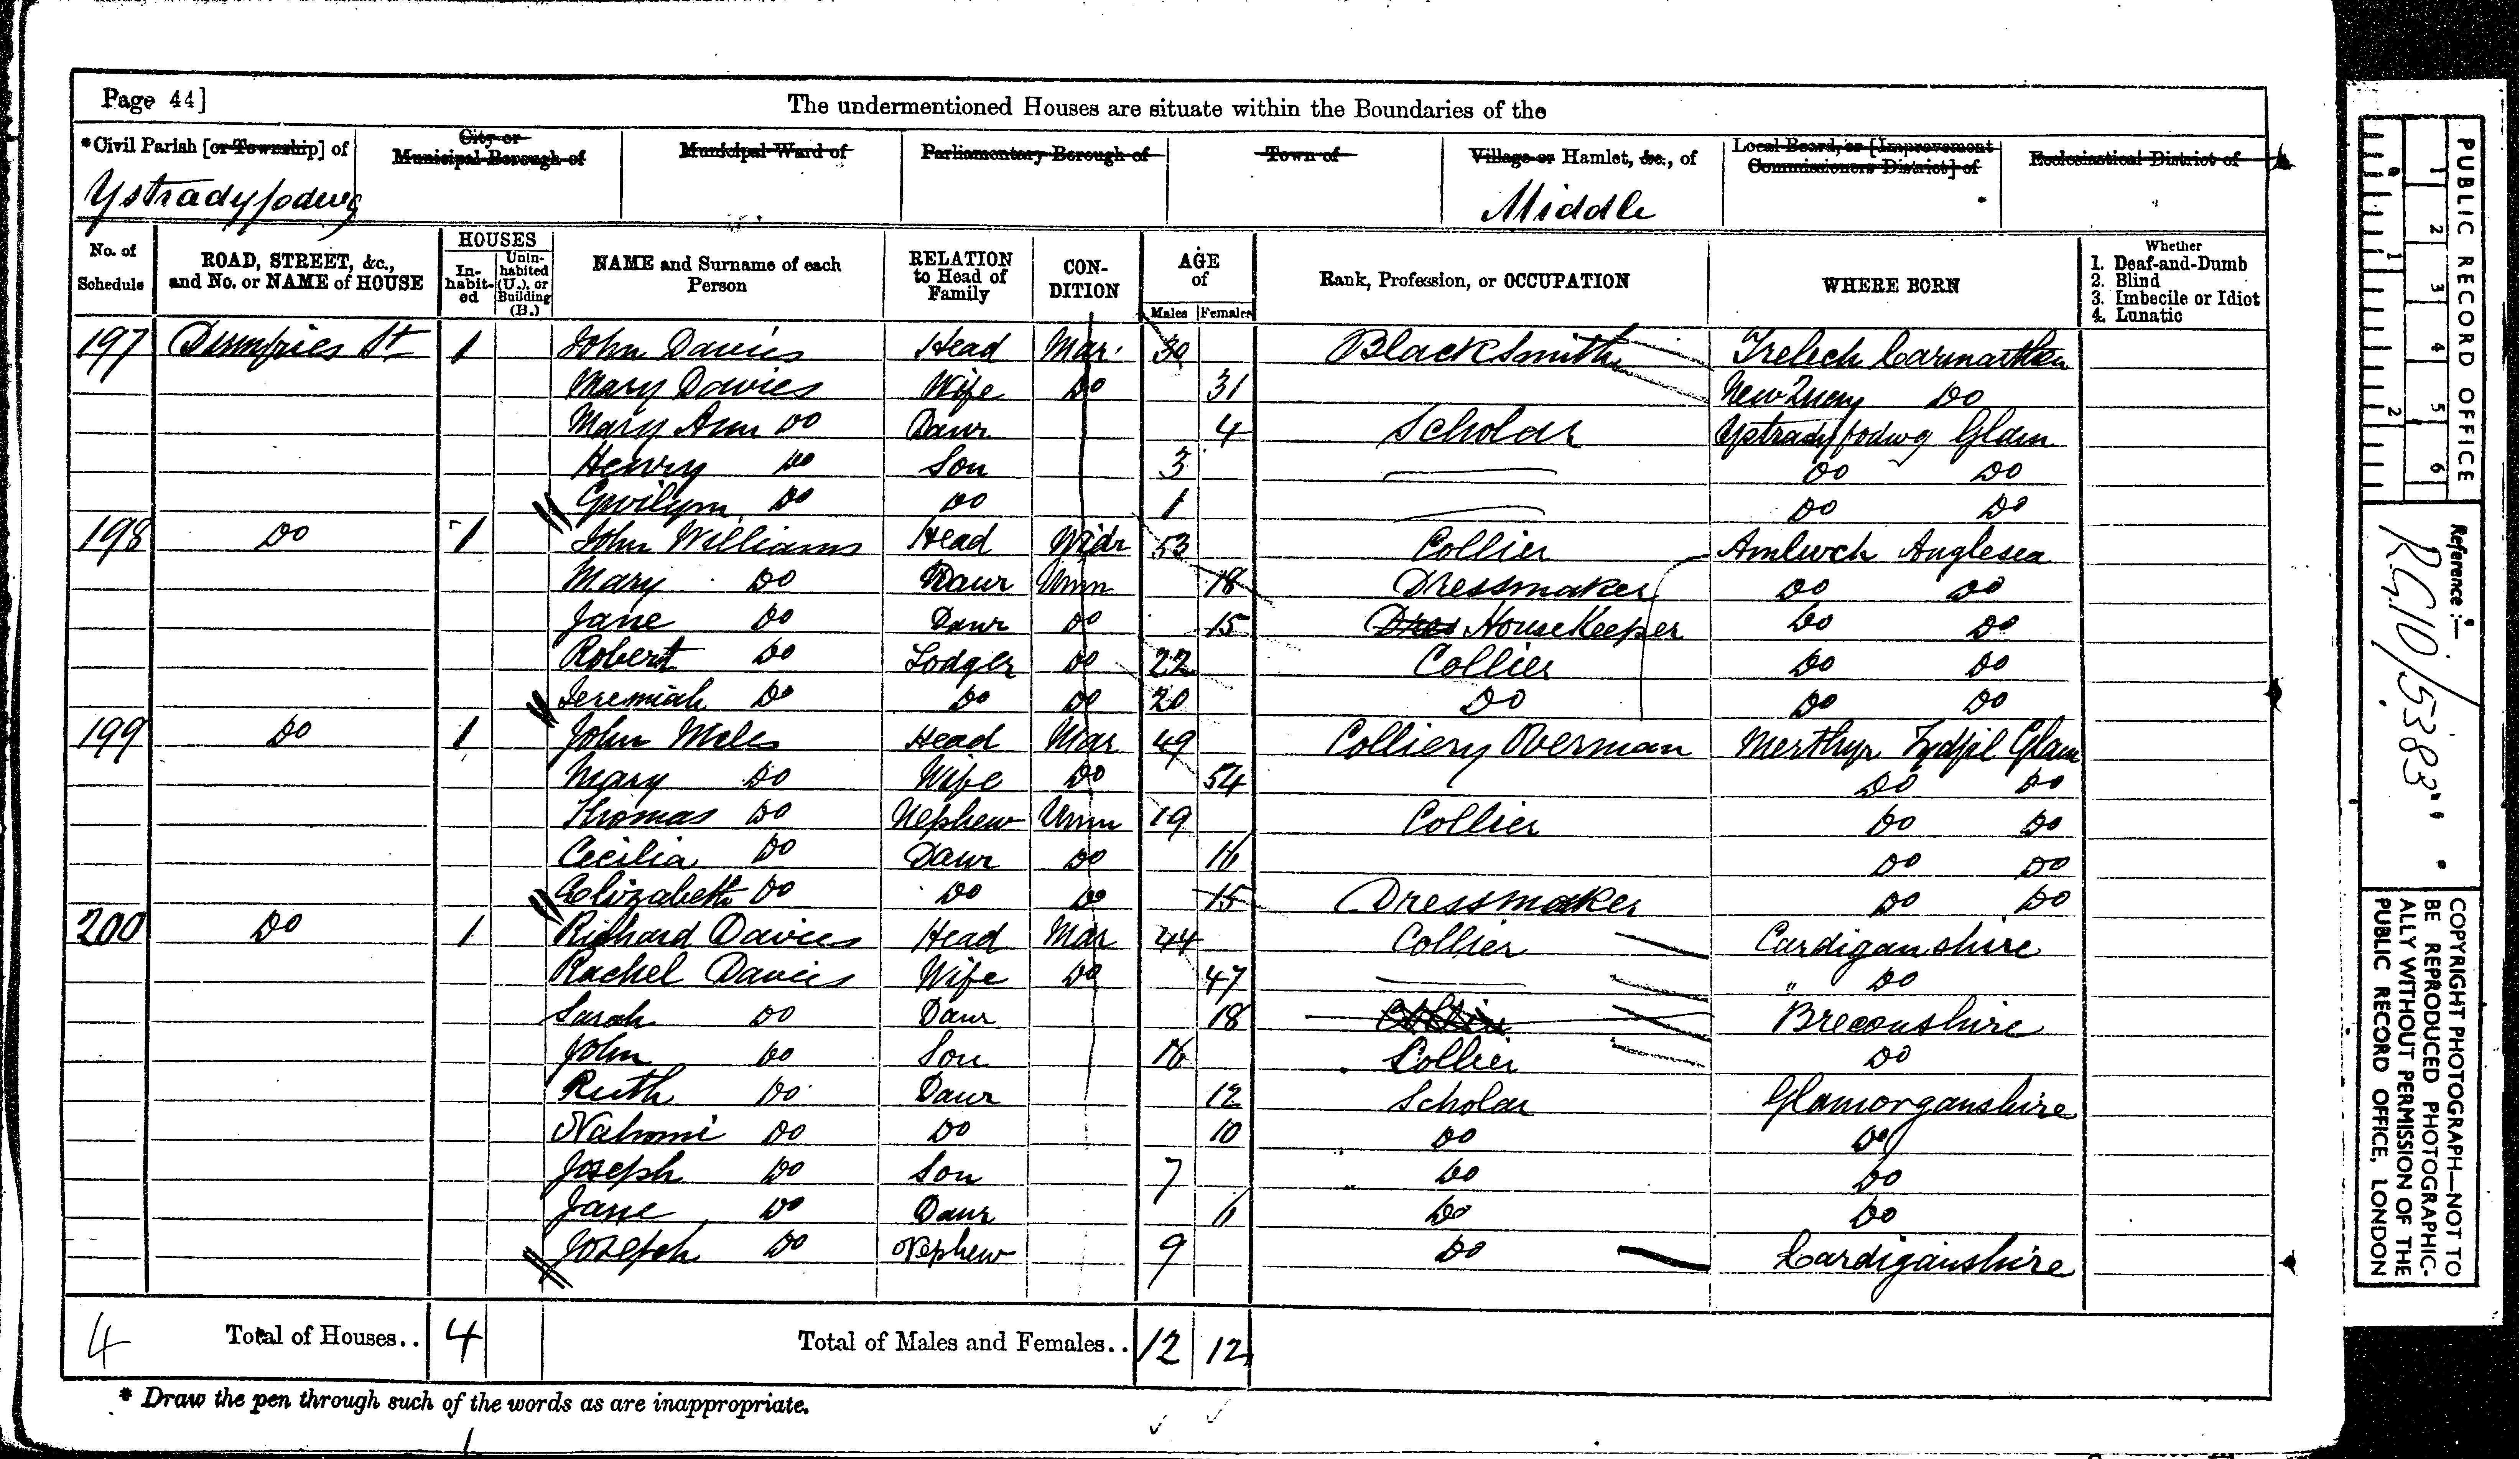 Page 44]
The undermentioned Houses are situate within the Boundaries of the
*Civil Parish [or Township] of City or Municipal Borough of Municipal Ward of Parliamentary Borough of Town of Village or Hamlet, &c., of Local Board, or [Improvement Commissioners District] of Ecclesiastical District of
Ystradyfodwg Middle
No. of Schedule ROAD, STREET, &c., and No. or NAME of HOUSE HOUSES In-habit-ed Unin-habited (U.), or Building (B.) NAME and Surname of each Person RELATION to Head of Family CON-DITION AGE of Males Females Rank, Profession, or OCCUPATION WHERE BORN Whether 1. Deaf-and-Dumb 2. Blind 3. Imbecile or Idiot 4. Lunatic
197 Dumfries St 1 John Davies Head Mar 30 Blacksmith Trelech Carmarthen
Mary Davies Wife Do 31 New Quay Do
Mary Ann Do Daur 4 Scholar Ystradyfodwg Glam
Henry Do Son 3 Do Do
Gwilym Do Do 1 Do Do
198 Do 1 John Williams Head Widr 53 Collier Amlwch Anglesea
Mary Do Daur Unm 18 Dressmaker Do Do
Jane Do Daur Do 15 Dres HouseKeeper Do Do
Robert Do Lodger Do 22 Collier Do Do
Jeremiah Do Do Do 20 Do Do Do
199 Do 1 John Miles Head Mar 49 Colliery Overman Merthyr Tydfil Glam
Mary Do Wife Do 54 Do Do
Thomas Do Nephew Unm 19 Collier Do Do
Cecilia Do Daur Do 16 Do Do
Elizabeth Do Do Do 15 Dressmaker Do Do
200 Do 1 Richard Davies Head Mar 44 Collier Cardiganshire
Rachel Davies Wife Do 47 " Do
Sarah Do Daur 18 Breconshire
John Do Son 16 Collier Do
Ruth Do Daur 12 Scholar Glamorganshire
Nahomi Do Do 10 Do Do
Joseph Do Son 7 Do Do
Jane Do Daur 6 Do Do
Joseph Do Nephew 9 Do Cardiganshire
4 Total of Houses.. 4 Total of Males and Females.. 12 12
* Draw the pen through such of the words as are inappropriate.
PUBLIC RECORD OFFICE
1 2 3 4 5 6
1 2
Reference:-
R.G.10/5383
COPYRIGHT PHOTOGRAPH—NOT TO
BE REPRODUCED PHOTOGRAPHIC-
ALLY WITHOUT PERMISSION OF THE
PUBLIC RECORD OFFICE, LONDON